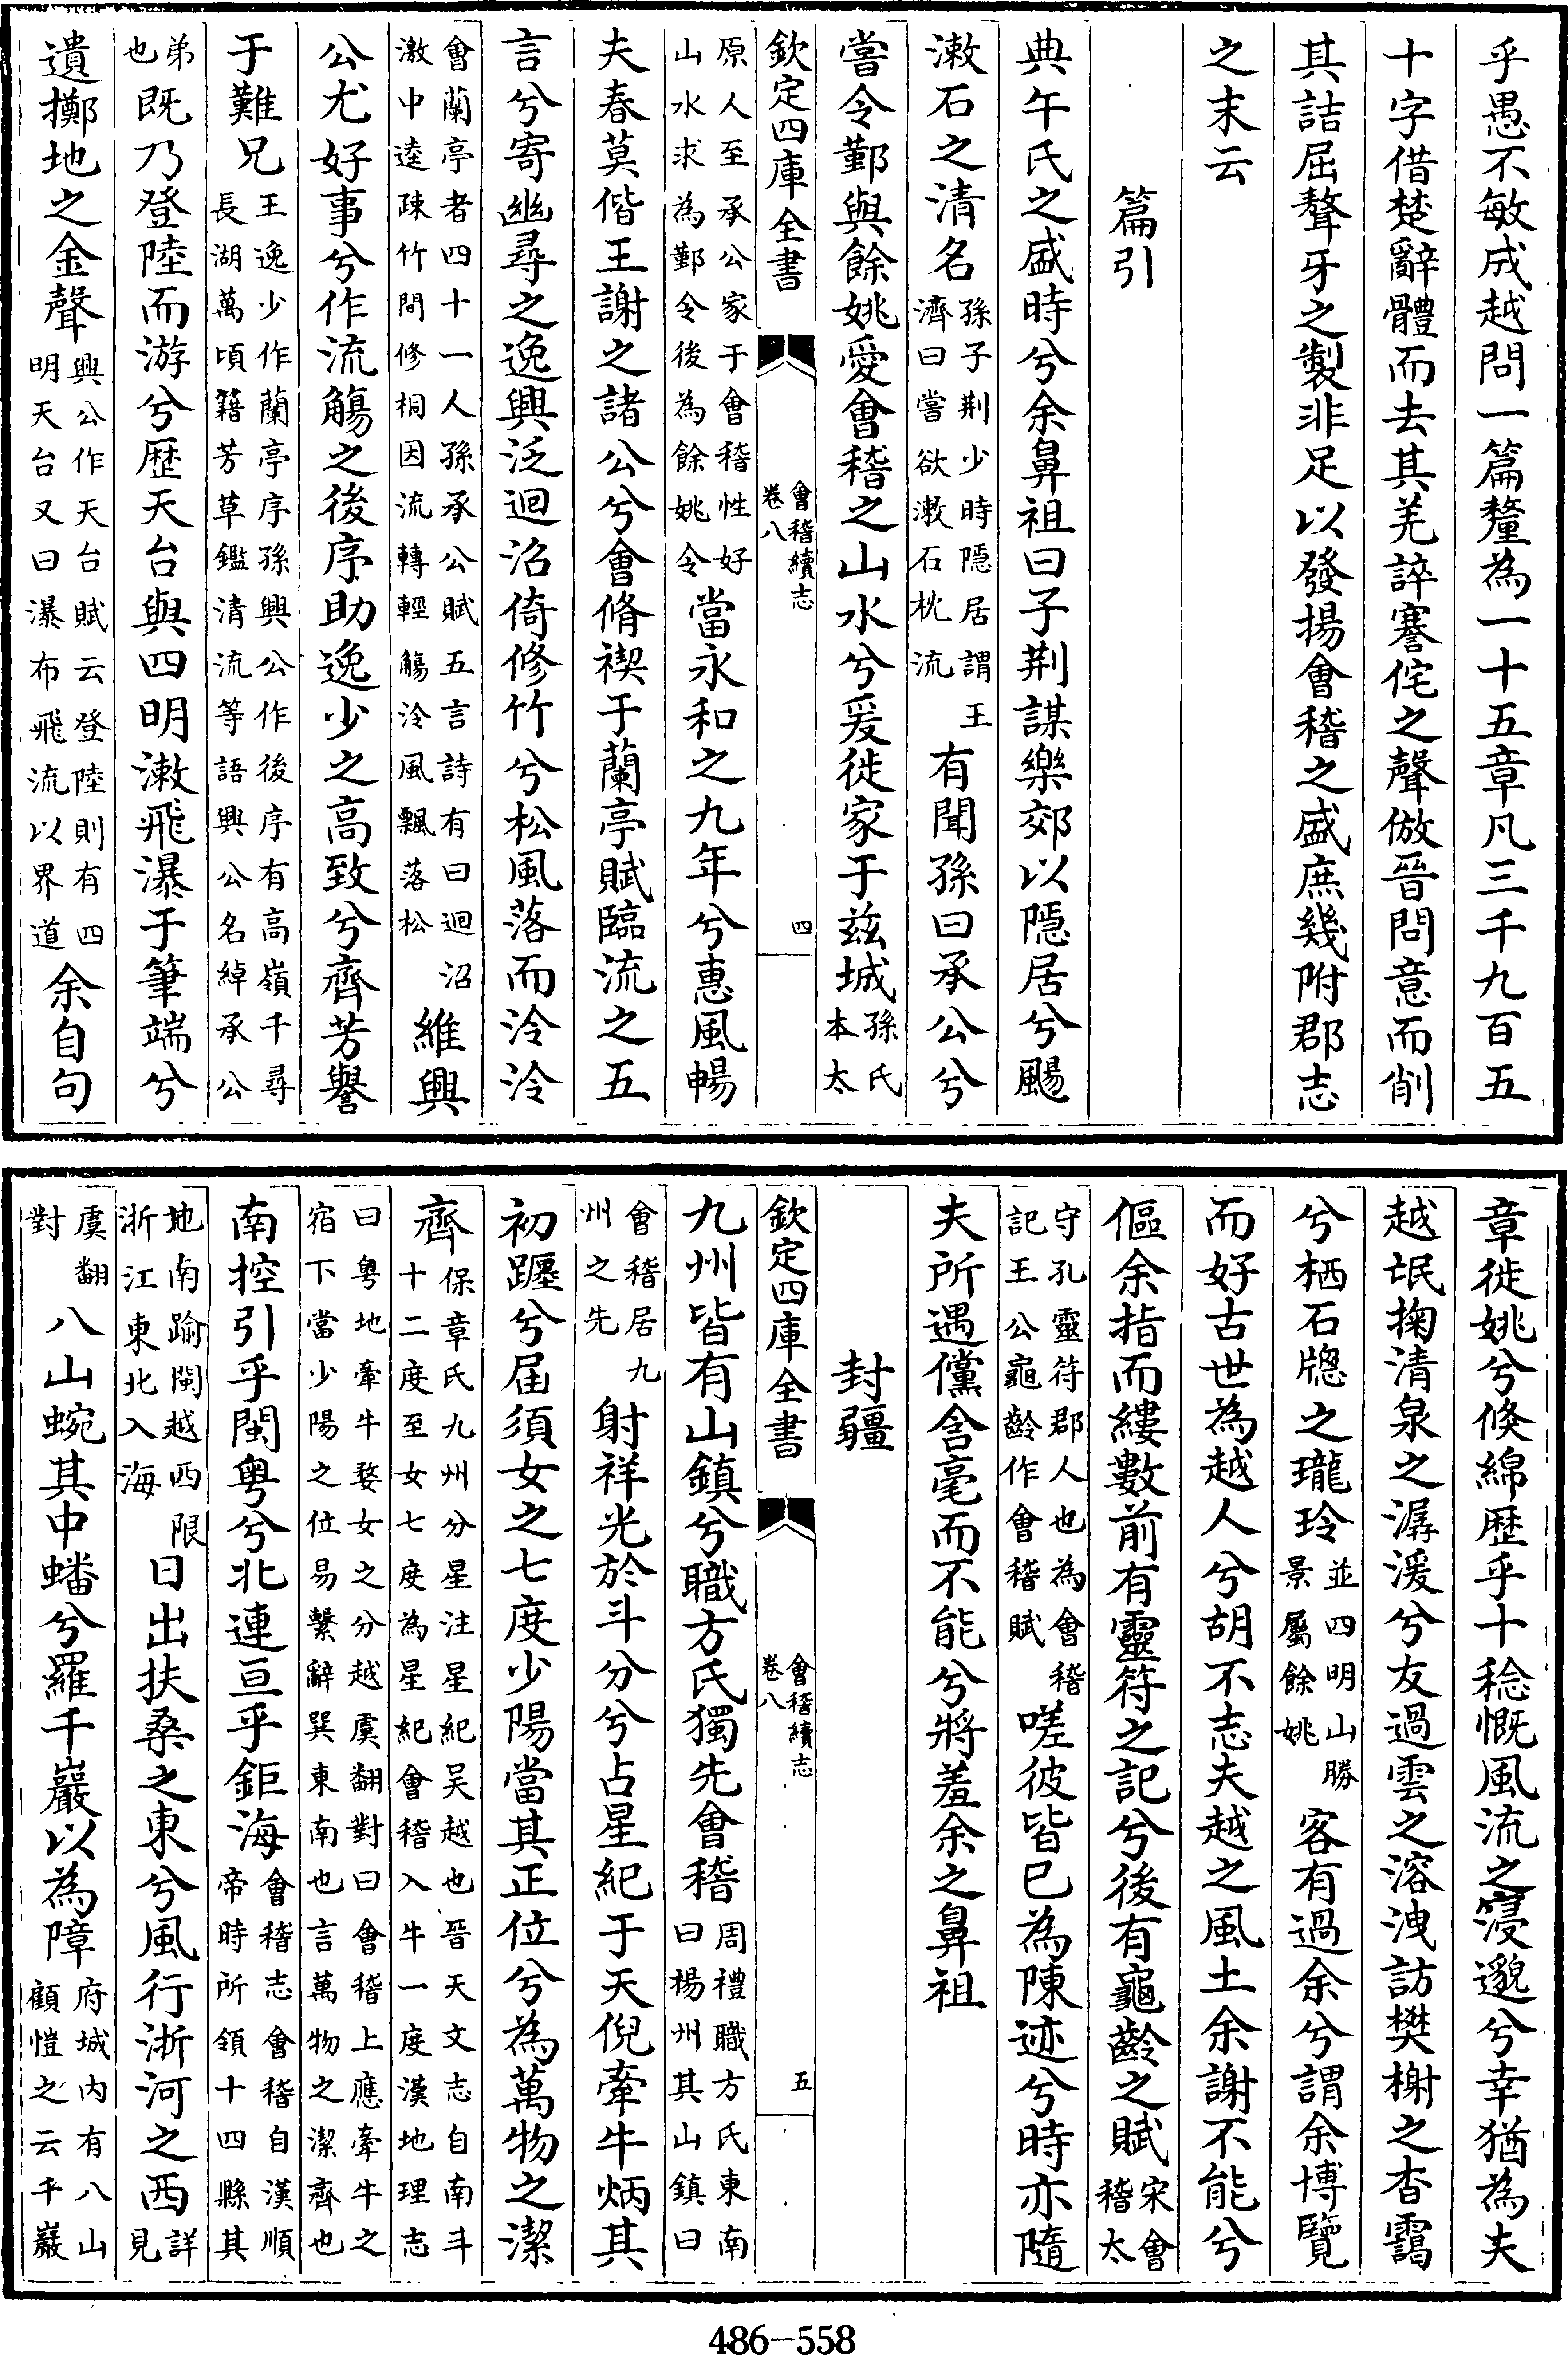 乎愚不敏成越問一篇釐為一十五章凡三千九百五
十字借楚辭體而去其羌誶蹇侘之聲倣晉問意而削
其詰屈聱牙之製非足以發揚會稽之盛庶幾附郡志
之末云
篇引
典午氏之盛時兮余鼻祖曰子荆謀樂郊以隱居兮颺
漱石之清名孫子荆少時隱居謂王濟曰嘗欲漱石枕流有聞孫曰承公兮
嘗令鄞與餘姚愛會稽之山水兮爰徙家于兹城孫氏本太
欽定四庫全書 會稽續志卷八 四
原人至承公家于會稽性好山水求為鄞令後為餘姚令當永和之九年兮惠風暢
夫春莫偕王謝之諸公兮會脩禊于蘭亭賦臨流之五
言兮寄幽尋之逸興泛迴沼倚修竹兮松風落而泠泠
會蘭亭者四十一人孫承公賦五言詩有曰迴沼激中逵疎竹間修桐因流轉輕觴泠風飄落松維興
公尤好事兮作流觴之後序助逸少之高致兮齊芳譽
于難兄王逸少作蘭亭序孫興公作後序有高嶺千尋長湖萬頃籍芳草鑑清流等語興公名綽承公
弟也既乃登陸而游兮歷天台與四明漱飛瀑于筆端兮
遺擲地之金聲興公作天台賦云登陸則有四明天台又曰瀑布飛流以界道余自句
章徙姚兮倏綿歷乎十稔慨風流之寖邈兮幸猶為夫
越氓掬清泉之潺湲兮友過雲之溶洩訪樊榭之杳靄
兮栖石牕之瓏玲並四明山勝景屬餘姚客有過余兮謂余博覽
而好古世為越人兮胡不志夫越之風土余謝不能兮
傴余指而縷數前有靈符之記兮後有龜齡之賦宋會稽太
守孔靈符郡人也為會稽記王公龜齡作會稽賦嗟彼皆已為陳迹兮時亦隨
夫所遇儻含毫而不能兮將羞余之鼻祖
封疆
欽定四庫全書 會稽續志卷八 五
九州皆有山鎮兮職方氏獨先會稽周禮職方氏東南曰楊州其山鎮曰
會稽居九州之先射祥光於斗分兮占星紀于天倪牽牛炳其
初躔兮届須女之七度少陽當其正位兮為萬物之潔
齊保章氏九州分星注星紀吴越也晉天文志自南斗十二度至女七度為星紀會稽入牛一度漢地理志
曰粤地牽牛婺女之分越虞翻對曰會稽上應牽牛之宿下當少陽之位易繫辭巽東南也言萬物之潔齊也
南控引乎閩粤兮北連亘乎鉅海會稽志會稽自漢順帝時所領十四縣其
地南踰閩越西限浙江東北入海日出扶桑之東兮風行浙河之西詳見
虞翻對八山蜿其中蟠兮羅千巖以為障府城内有八山顧愷之云千巖
486-558